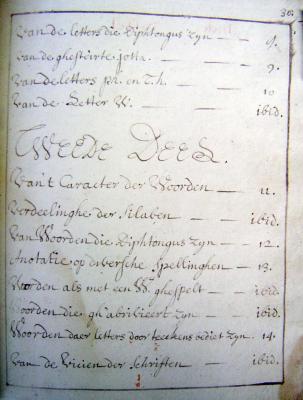 30.
Van de letters die Diphtongus Zyn — 9.
van de ghesteirte jotta. — 9.
van de letters ph. en T.h. — 10
van de Letter W. — ibid.
TWEEDE DEEL.
Van't Caracter der Woorden — 11.
verdeelinghe der Silaben — ibid.
Van Woorden die Diphtongus Zyn — 12.
Anotatie op diversche Spellinghen — 13.
Worden als met een W. ghespelt — ibid.
Woorden die gh'abrivieert Zyn — ibid.
Woorden daer letters door teeckens bediet Zyn. 14.
van de Vicien der Schriften — ibid.